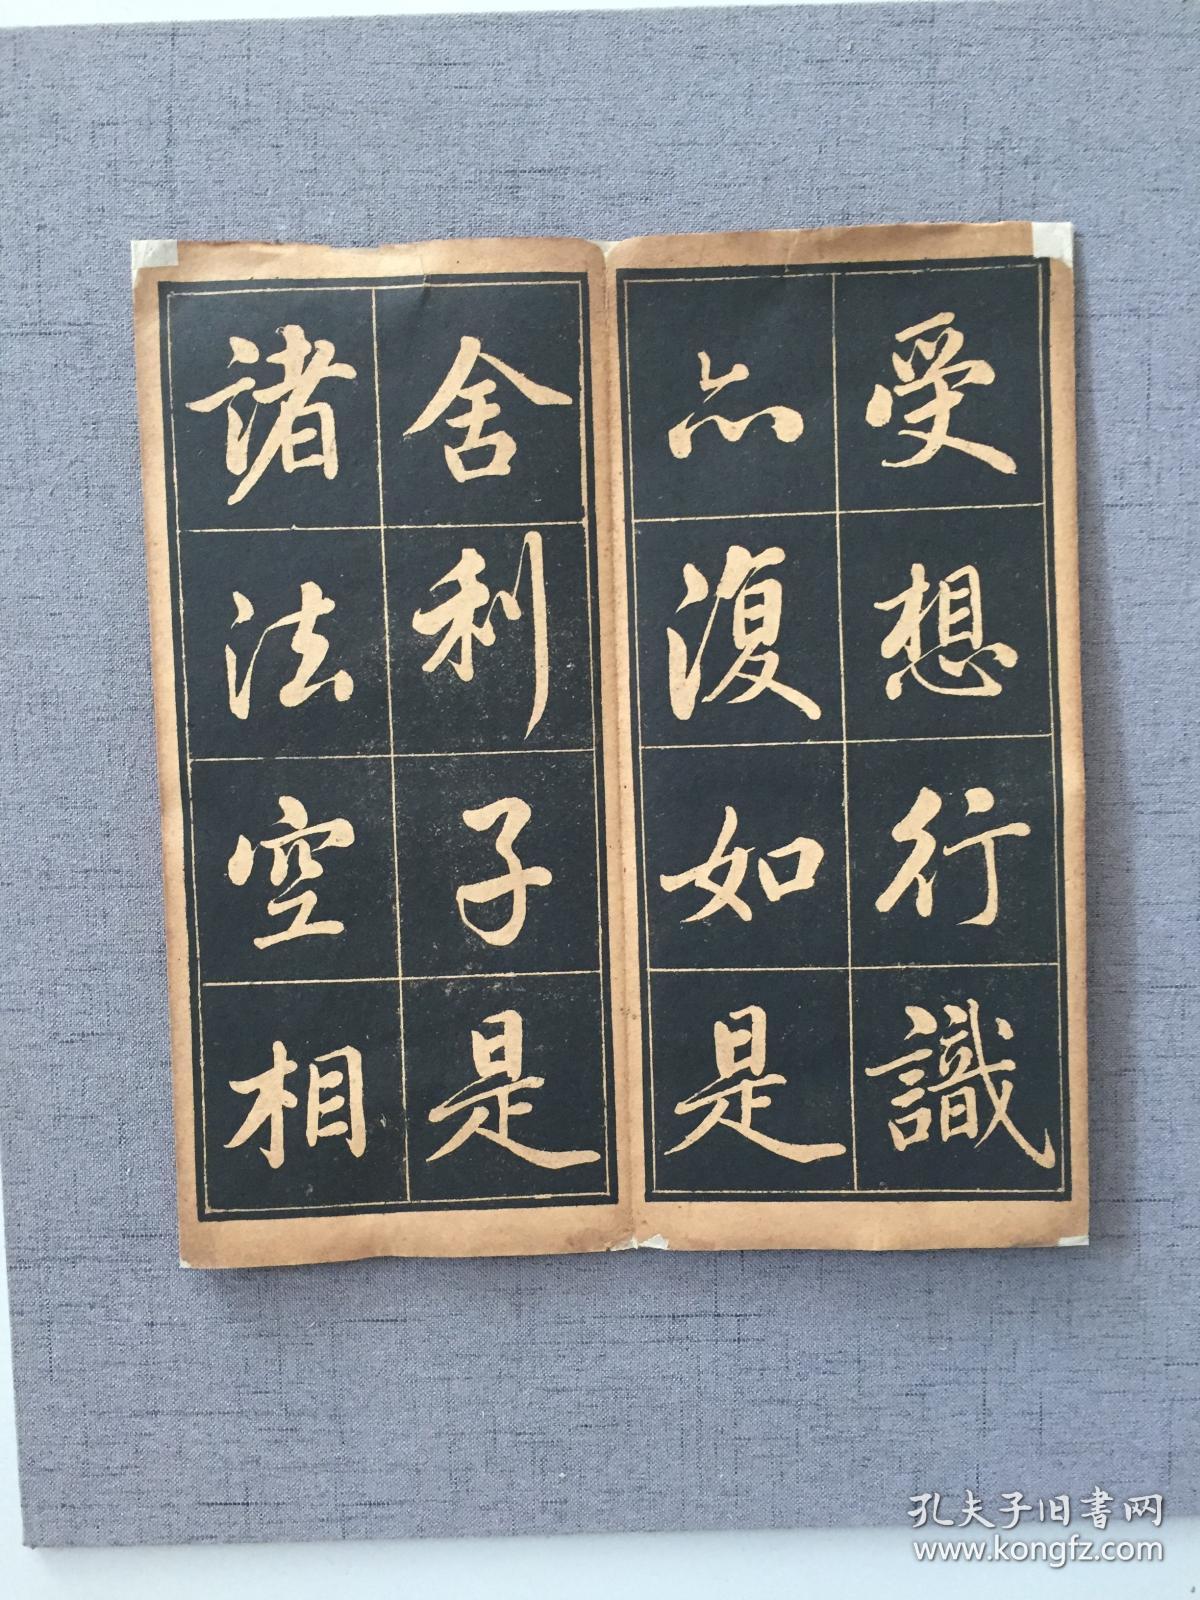 受想行識
亦復如是
舍利子是
諸法空相
孔夫子旧書网
www.kongfz.com